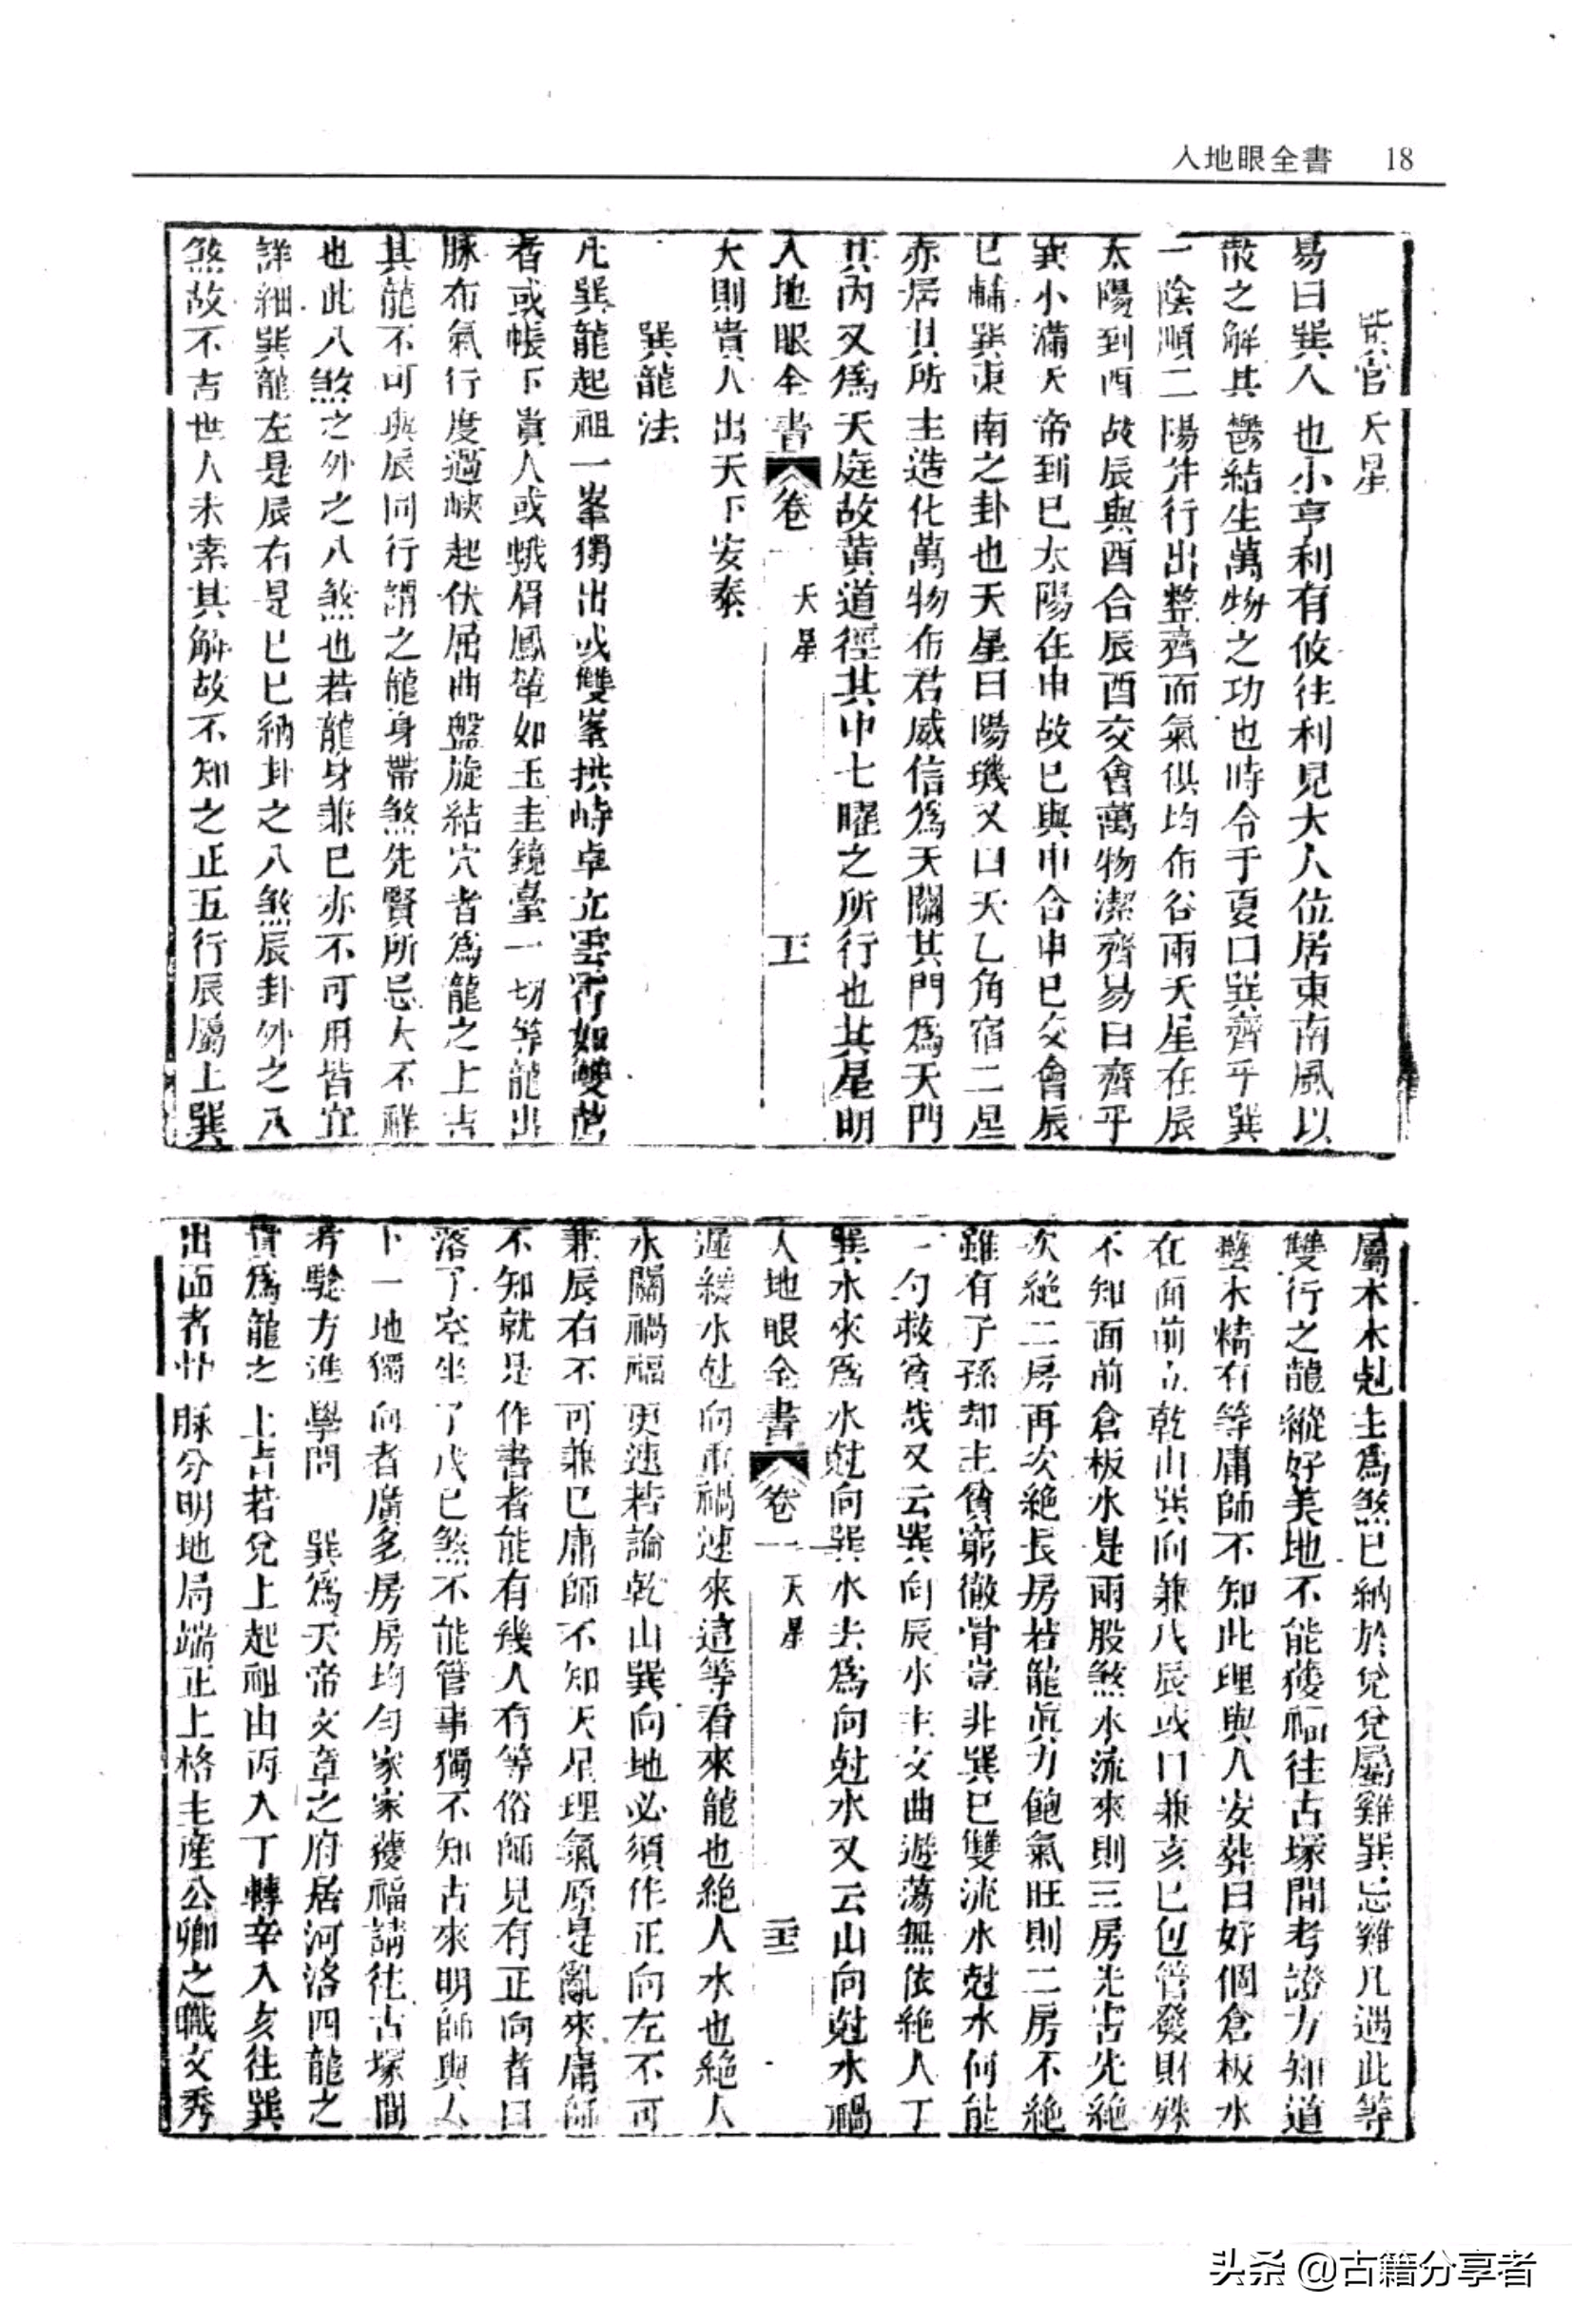 入地眼全書 18
紫官天星
易曰巽入也小亨利有攸往利見大人位居東南風以
散之解其鬱結生萬物之功也時令于夏曰巽齊乎巽
一陰順二陽并行出整齊而氣俱均布谷雨天星在辰
太陽到酉故辰與酉合辰酉交會萬物潔齊易曰齊乎
巽小滿天帝到巳太陽在申故巳與申合申巳交會辰
巳輔巽東南之卦也天星曰陽璣又曰天乙角宿二星
赤居其所主造化萬物布君威信為天關其門為天門
其內又為天庭故黃道徑其中七曜之所行也其星明
入地眼全書 卷一 天星
大則貴人出天下安泰
巽龍法
凡巽龍起祖一峯獨出或雙峯拱峙卓立雲霄如雙薦
者或帳下貴人或蛾眉鳳輦如玉圭鏡臺一切等龍出
脉布氣行度過峽起伏屈曲盤旋結穴者為龍之上吉
其龍不可與辰同行謂之龍身帶煞先賢所忌大不祥
也此八煞之外之八煞也若龍身兼巳亦不可用皆宜
詳細巽龍左是辰右是巳巳納卦之八煞辰卦外之八
煞故不吉世人未索其解故不知之正五行辰屬土巽
屬木木尅土為煞巳納於兌兌屬雞巽忌雞凡遇此等
雙行之龍縱好美地不能獲福往古塚間考證方知道
蠱木精有等庸師不知此理與人安葬曰好個倉板水
在面前立乾山巽向兼戌辰或曰兼亥巳包管發財殊
不知面前倉板水是兩股煞水流來則三房先害先絕
次絕二房再次絕長房若龍真力飽氣旺則二房不絕
雖有子孫却主貧窮徹骨豈非巽巳雙流水尅水何能
一勺救貧哉又云巽向辰水主文曲遊蕩無依絕人丁
巽水來為水尅向巽水去為向尅水又云山向尅水禍
入地眼全書 卷一 天星
遲緩水尅向重禍速來這等看來龍也絕人水也絕人
水關禍福更速若論乾山巽向地必須作正向左不可
兼辰右不可兼巳庸師不知天星理氣原是亂來庸師
不知就是作書者能有幾人有等俗師見有正向者曰
落了空坐了戊巳煞不能管事獨不知古來明師與人
下一地獨向者廣多房房均勻家家獲福請往古塚間
考驗方進學問 巽為天帝文章之府居河洛四龍之
貴為龍之上吉若兌上起祖由丙入丁轉辛入亥往巽
出面者廿脉分明地局端正上格主產公卿之職文秀
头条@古籍分享者